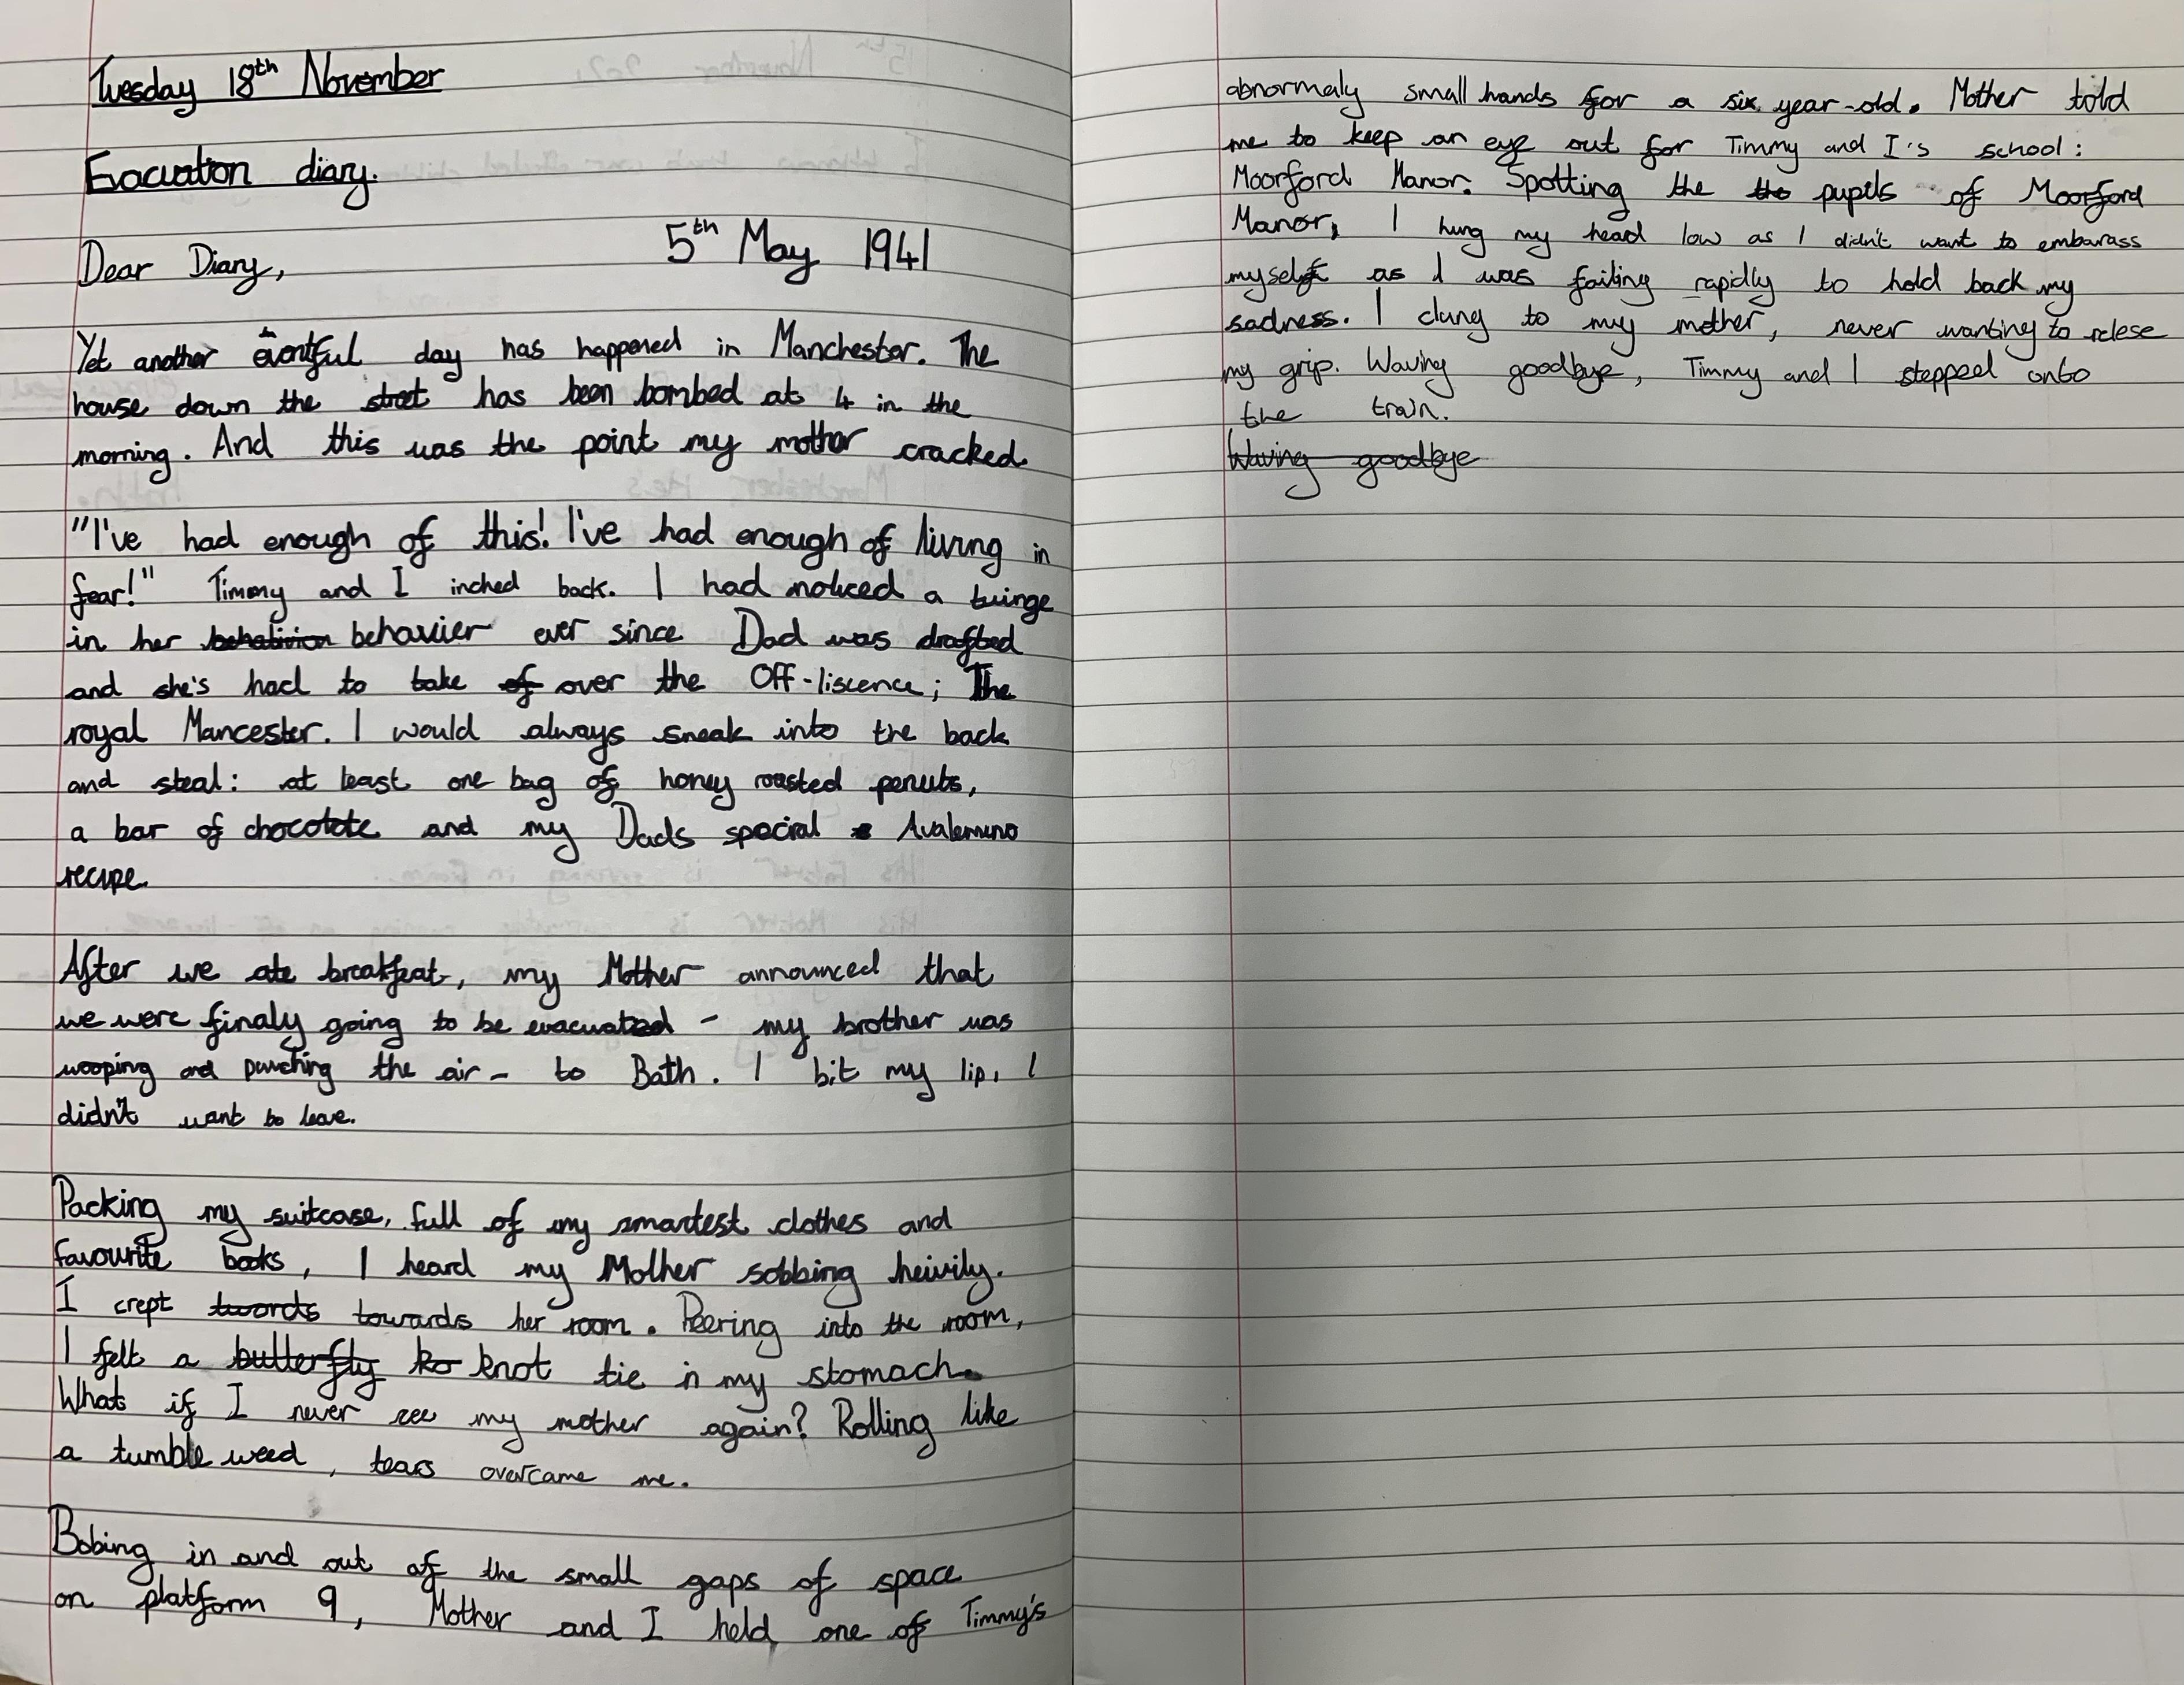 Tuesday 18th November
Evacuation diary.
Dear Diary,
5th May 1941
Yet another eventful day has happened in Manchester. The
house down the street has been bombed at 4 in the
morning. And this was the point my mother cracked
"I've had enough of this! I've had enough of living in
fear!" Timmy and I inched back. I had noticed a twinge
in her behavier ever since Dad was drafted
and she's had to take of over the Off-liscence; The
royal Mancester. I would always sneak into the back
and steal: at least one bag of honey roasted penuts,
a bar of chocolate and my Dads special
recipe.
After we ate breakfeat, my Mother announced that
we were finaly going to be evacuated - my brother was
wooping and punching the air - to Bath. I bit my lip, I
didn't want to leave.
Packing my suitcase, full of my smartest clothes and
favourite books, I heard my Mother sobbing heivily.
I crept twords towards her room. Peering into the room,
I felt a butterfly ko knot tie in my stomach.
What if I never see my mother again? Rolling like
a tumble weed, tears overcame me.
Bobing in and out of the small gaps of space
on platform 9, Mother and I held one of Timmy's
abnormaly small hands for a six year-old. Mother told
me to keep an eye out for Timmy and I's school:
Moorford Manor. Spotting the the pupils of Moorford
Manor, I hung my head low as I didn't want to embarass
myself as I was failing rapidly to hold back my
sadness. I clung to my mother, never wanting to relese
my grip. Waving goodbye, Timmy and I stepped onto
the train.
Waving goodbye